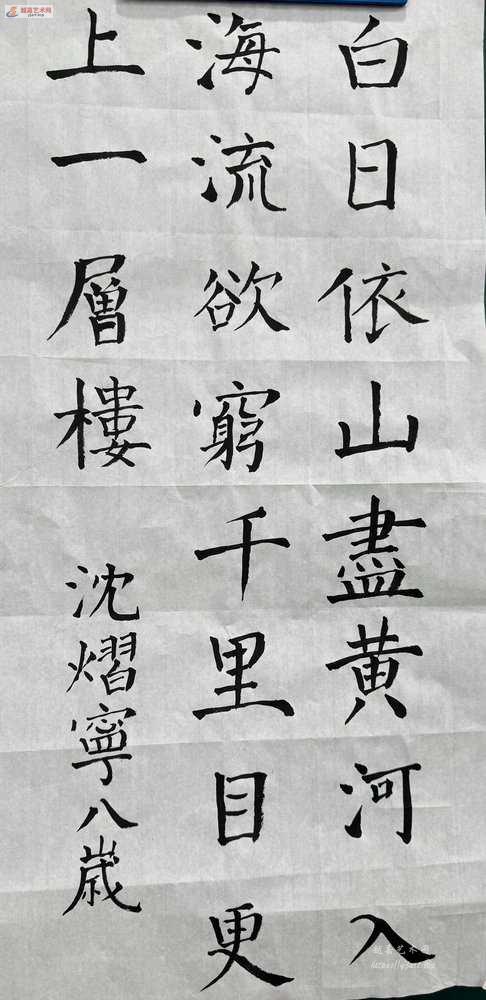 白日依山盡黄河入
海流欲窮千里目更
上一層樓
沈熠寧八歳
越嘉艺术网
越嘉艺术网